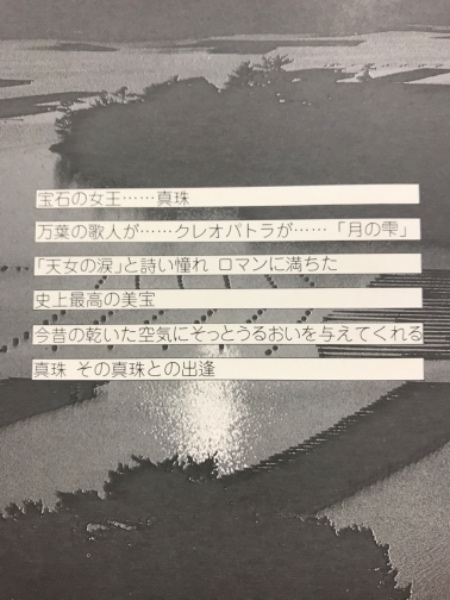 宝石の女王……真珠
万葉の歌人が……クレオパトラが……「月の雫」
「天女の涙」と詩い憧れ ロマンに満ちた
史上最高の美宝
今昔の乾いた空気にそっとうるおいを与えてくれる
真珠 その真珠との出逢